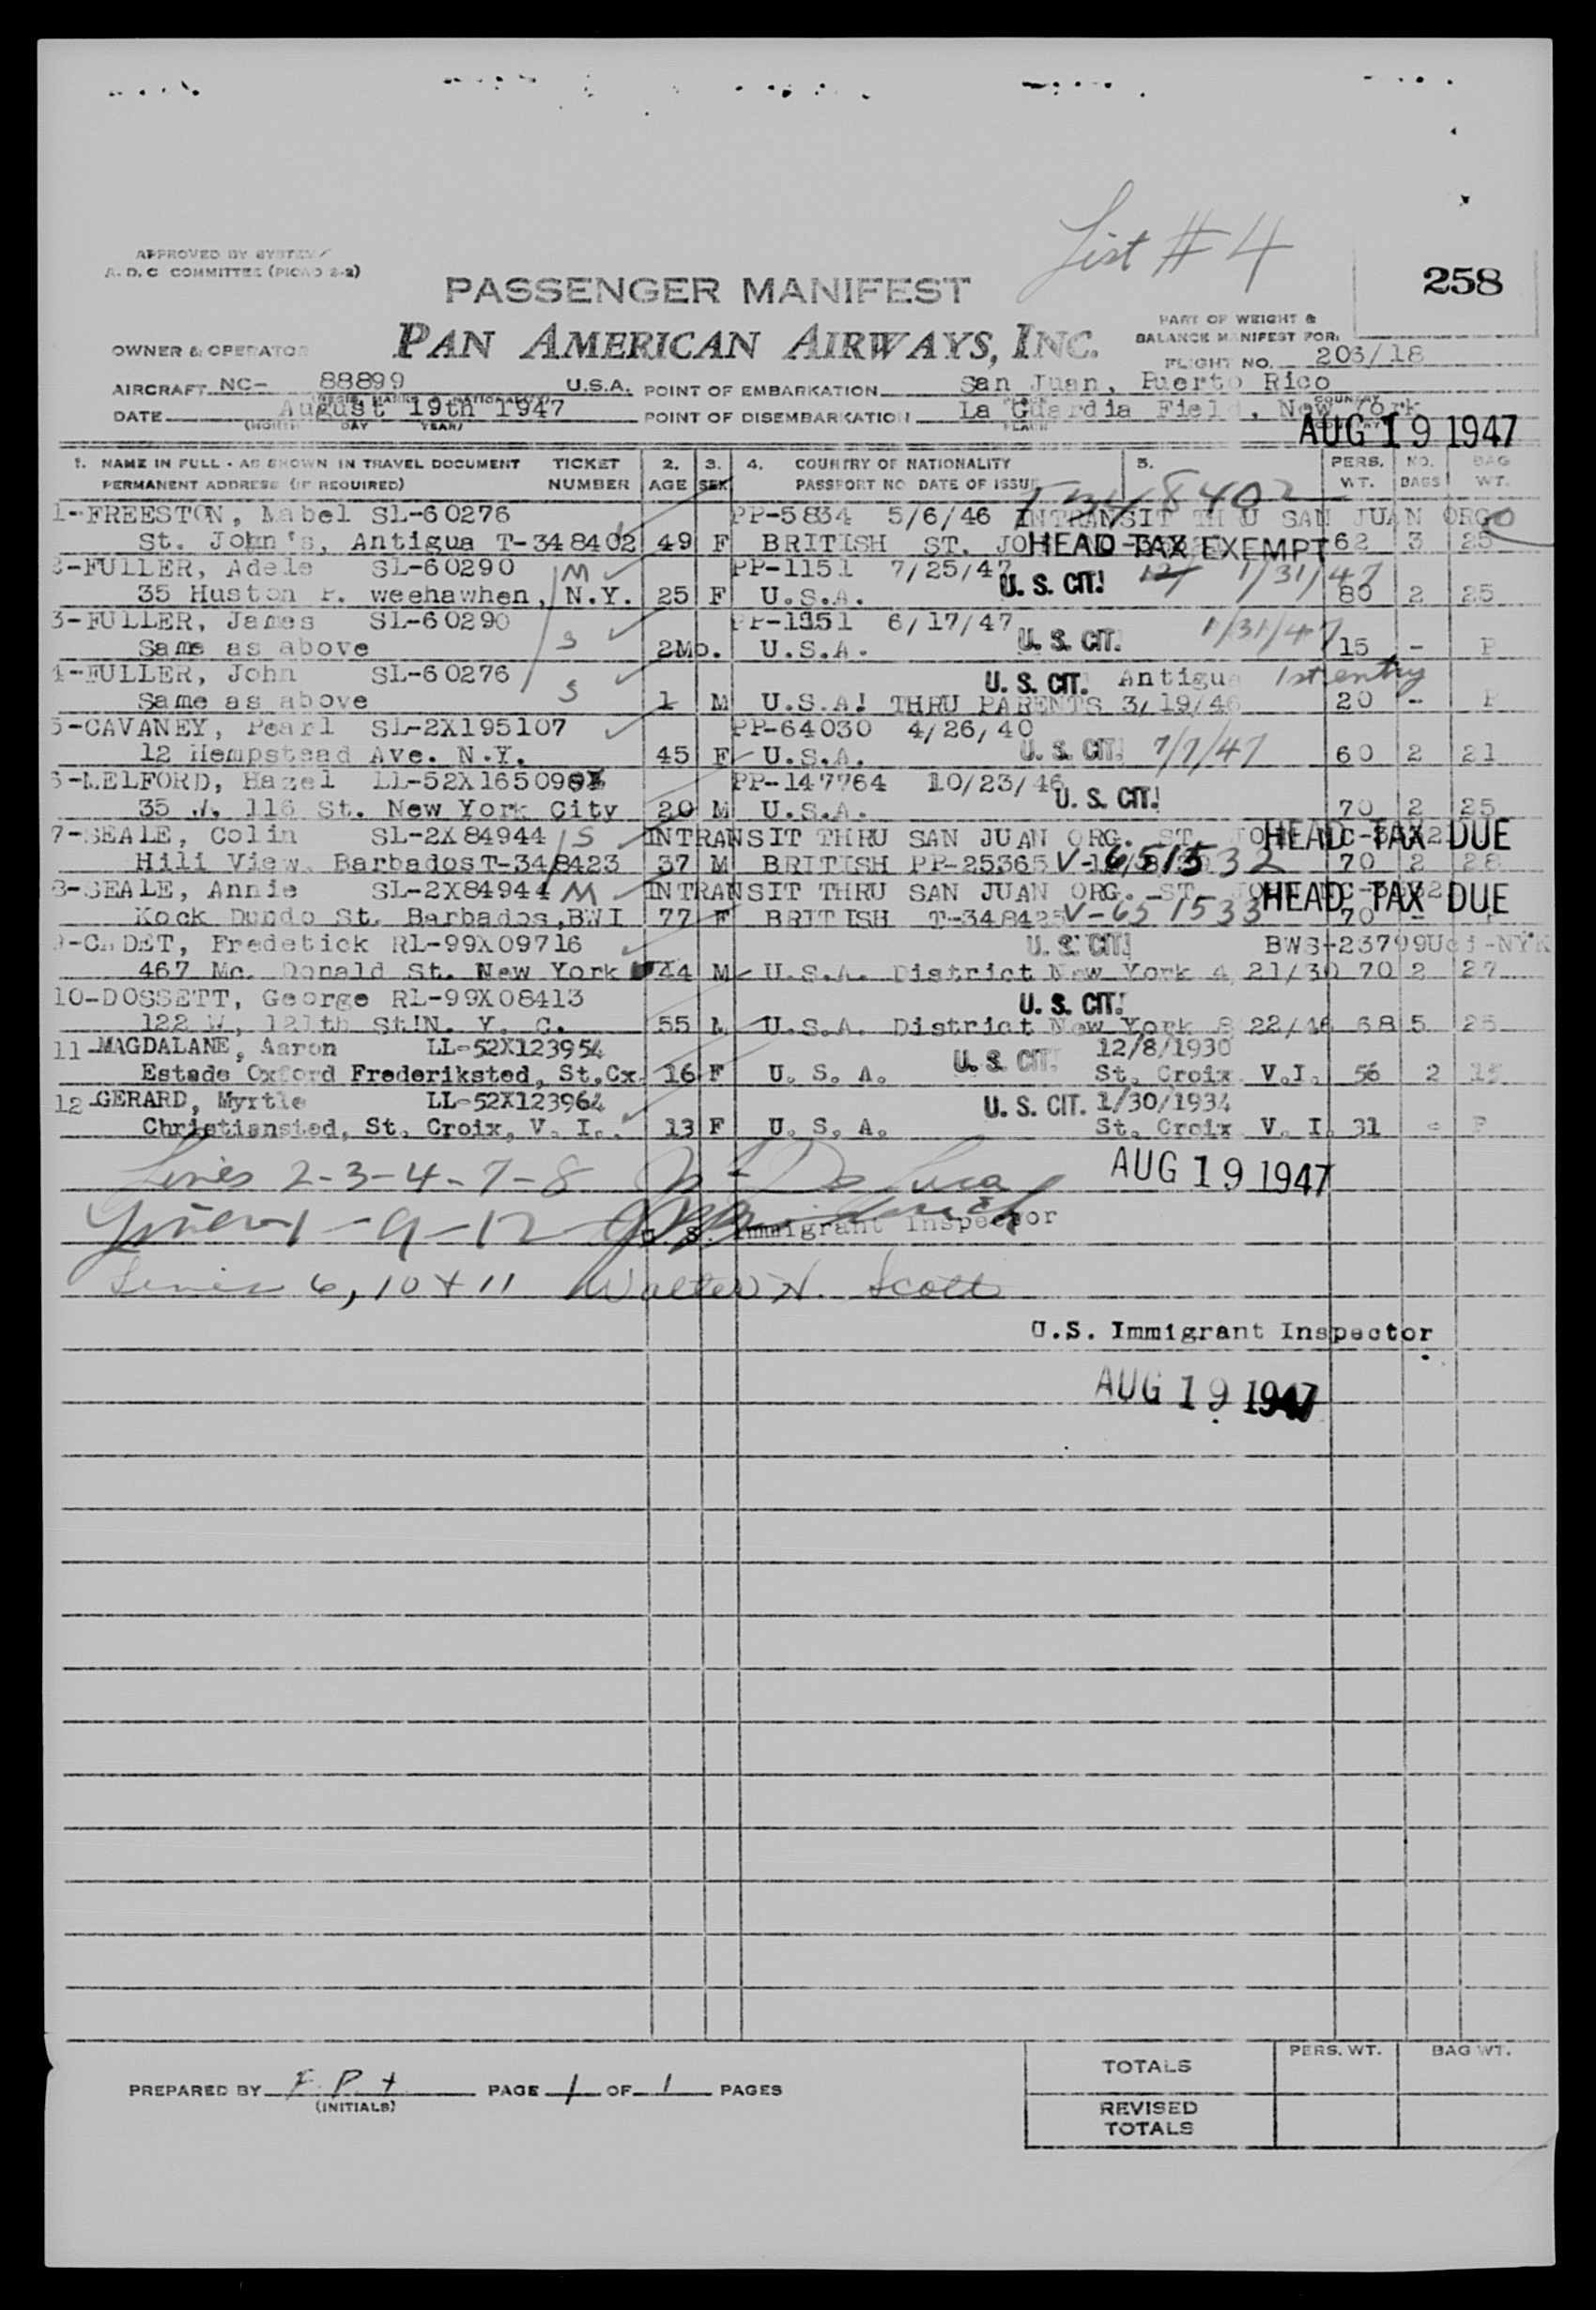 List # 4
APPROVED BY SYSTEM
A. D. C COMMITTEE (PICAO 2-2)
258
PASSENGER MANIFEST
PAN AMERICAN AIRWAYS, INC.
PART OF WEIGHT &
BALANCE MANIFEST FOR:
OWNER & OPERATOR
FLIGHT NO. 203/18
AIRCRAFT NC- 88899 U.S.A. POINT OF EMBARKATION San Juan, Puerto Rico
DATE August 19th 1947 POINT OF DISEMBARKATION La Guardia Field, New York
(MONTH DAY YEAR) PLACE COUNTRY
AUG 19 1947
1. NAME IN FULL - AS SHOWN IN TRAVEL DOCUMENT TICKET 2. 3. 4. COUNTRY OF NATIONALITY 5. PERS. NO. BAG
PERMANENT ADDRESS (IF REQUIRED) NUMBER AGE SEX PASSPORT NO DATE OF ISSUE WT. BAGS WT.
T348402
1-FREESTON, Mabel SL-60276 PP-5834 5/6/46 INTRANSIT THRU SAN JUAN ORG
St. John's, Antigua T-348402 49 F BRITISH ST. JO HEAD TAX EXEMPT 62 3 25
2-FULLER, Adele SL-60290 M PP-1151 7/25/47 U. S. CIT. 1/31/47
35 Huston P. weehawhen, N.Y. 25 F U.S.A. 80 2 25
3-FULLER, James SL-60290 PP-1151 6/17/47 U. S. CIT. 1/31/47
Same as above S 2Mo. U.S.A. 15 - F
4-FULLER, John SL-60276 U. S. CIT. Antigua 1st entry
Same as above S 1 M U.S.A! THRU PARENTS 3/19/46 20 - F
5-CAVANEY, Pearl SL-2X195107 PP-64030 4/26/40
12 Hempstead Ave. N.Y. 45 F U.S.A. U. S. CIT. 7/7/47 60 2 21
6-MELFORD, Hazel LL-52X16509 PP-147764 10/23/46 U. S. CIT.
35 W. 116 St. New York City 20 M U.S.A. 70 2 25
7-SEALE, Colin SL-2X84944 S INTRANSIT THRU SAN JUAN ORG. ST. HEAD TAX DUE
Hill View, Barbados T-348423 37 M BRITISH PP-25365 V-651532 70 2 28
8-SEALE, Annie SL-2X84944 M INTRANSIT THRU SAN JUAN ORG. ST. HEAD TAX DUE
Kock Dundo St. Barbados,BWI 77 F BRITISH T-348425 V-651533 70 -
9-CADET, Fredetick RL-99X09716 U. S. CIT. BWS-23799
467 Mc. Donald St. New York 44 M U.S.A. District New York 4 21/30 70 2 27
10-DOSSETT, George RL-99X08413 U. S. CIT.
122 W, 121th St!N. Y. C. 55 M U.S.A. District New York 8 22/46 68 5 25
11-MAGDALANE, Aaron LL-52X123954 U. S. CIT. 12/8/1930
Estade Oxford Frederiksted, St.Cx. 16 F U. S. A. St. Croix V.I. 56 2 15
12-GERARD, Myrtle LL-52X123964 U. S. CIT. 1/30/1934
Christiansted, St. Croix, V. I. 13 F U. S. A. St. Croix V. I. 31 - F
Lines 2-3-4-7-8 AUG 19 1947
Lines 1-9-12 U. S. Immigrant Inspector
Lines 6, 10 + 11 Walter H. Scott
U.S. Immigrant Inspector
AUG 19 1947
PREPARED BY F P t PAGE 1 OF 1 PAGES
(INITIALS)
TOTALS PERS. WT. BAG WT.
REVISED
TOTALS